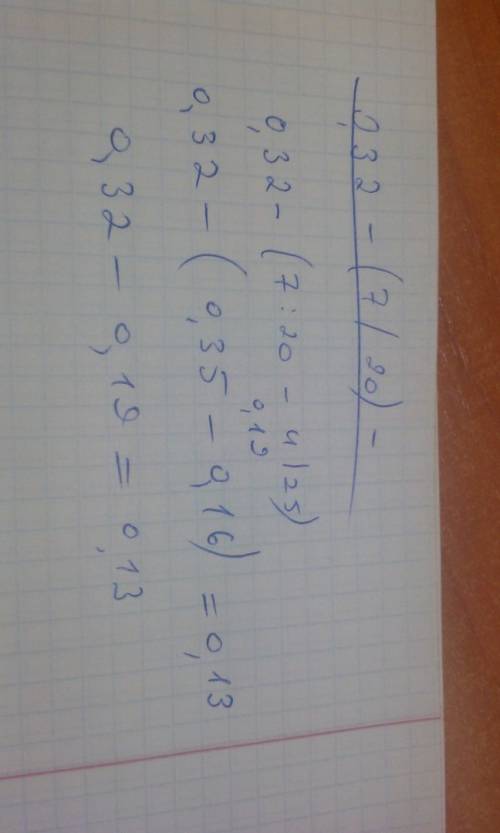 0,32 - (7 / 20) -
0,32 - (7 : 20 - 4 / 25)
0,19
0,32 - ( 0,35 - 0,16) = 0,13
0,32 - 0,19 = 0,13